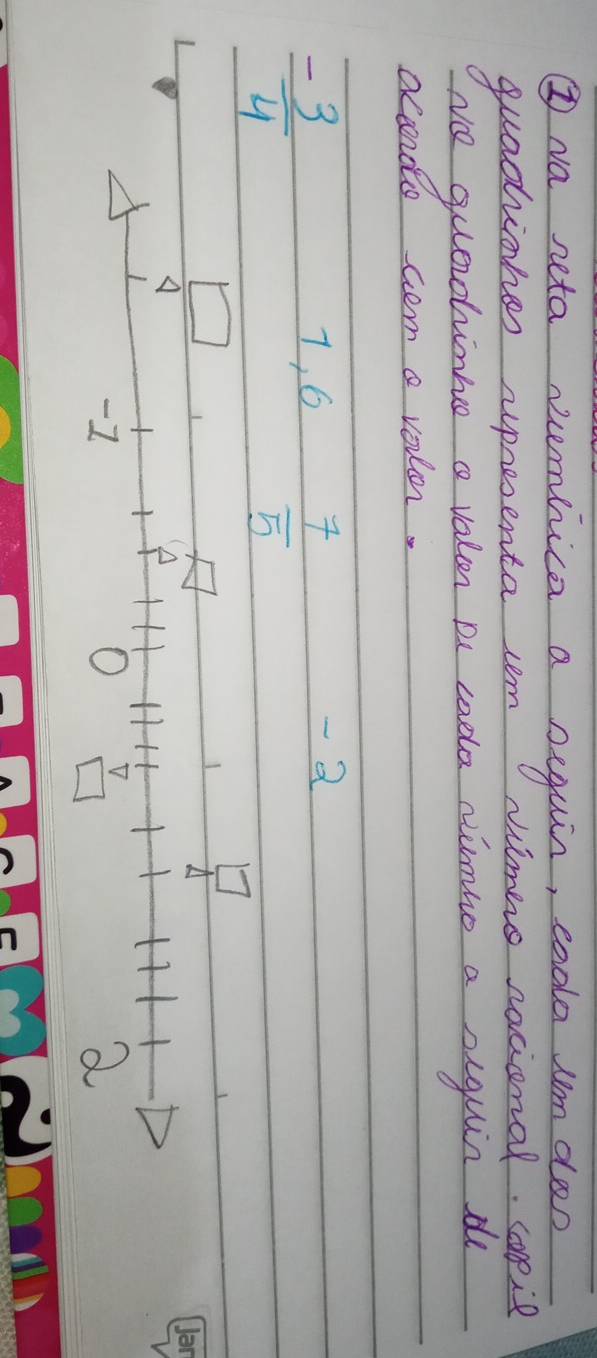 ① na reta numérica a seguir, cada um dos
quadrinhos representa um número racional. copie
no quadrinho o valor de cada número a seguir de
acordo com o valor.
-3/4 1,6 7/5 -2
-1 0 2